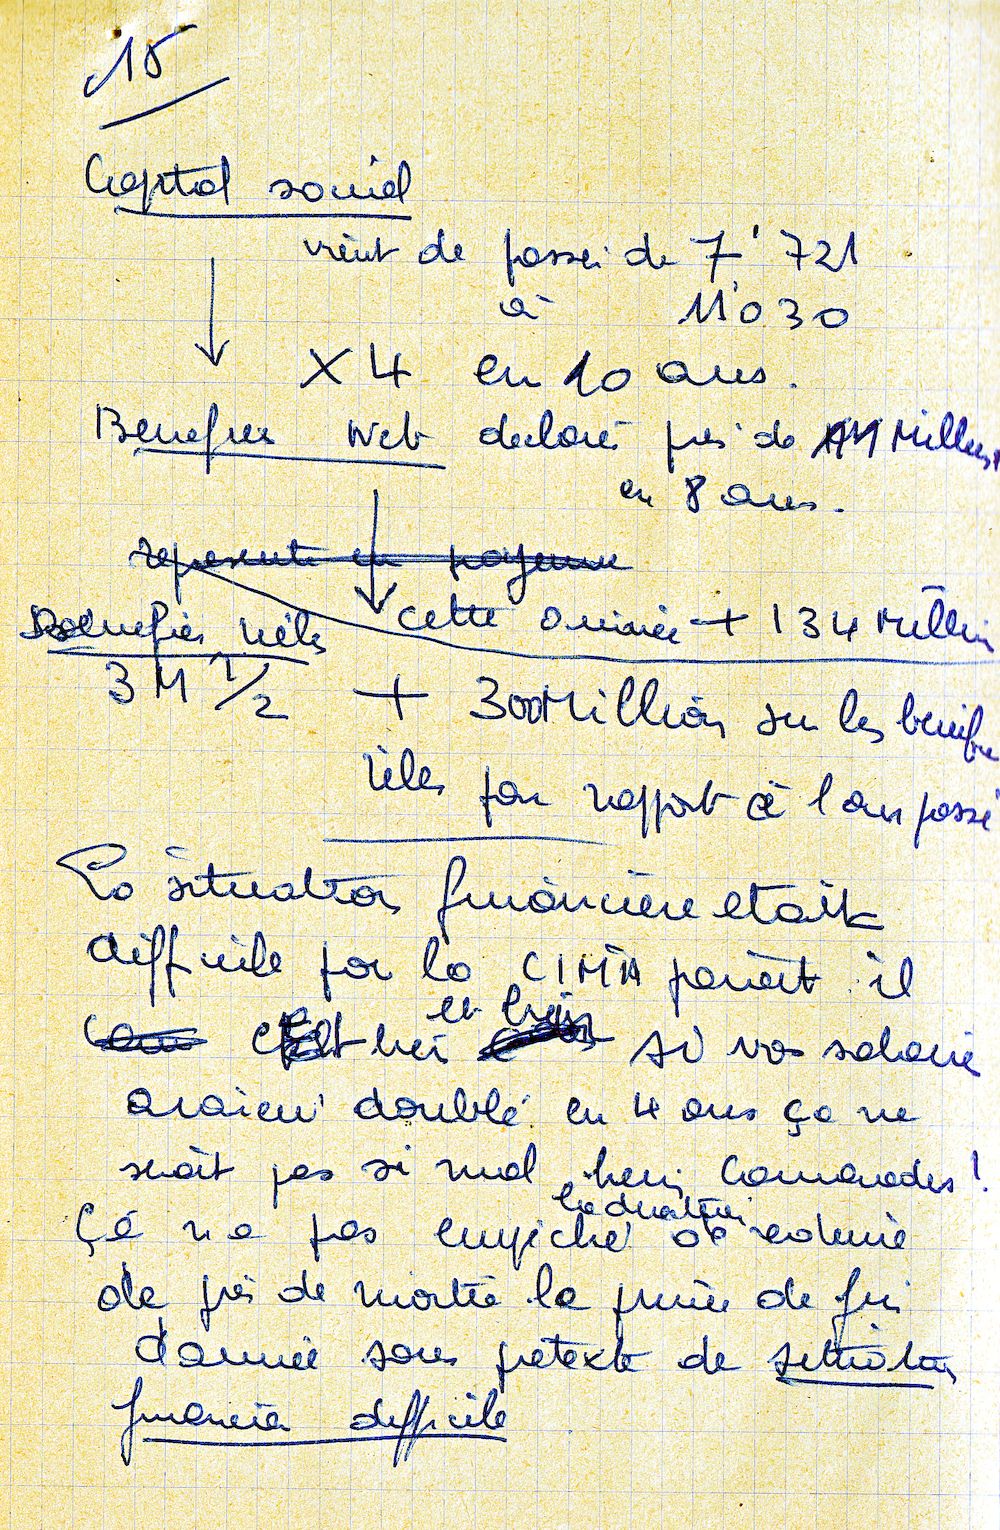 15
Capital social
vient de passer de 7'721
à 11'030
X 4 en 10 ans.
Benefices Net déclaré près de 11 Millions
en 8 ans.
represente en moyenne
Benefices réels cette année + 134 Million
3 M 1/2 + 300 Million sur les benefice
réels par rapport à l'an passé
La situation financière etait
difficile par la CIMA parait il
et bien
C'Est hei si vos salaire
avaient doublé en 4 ans ça ne
serait pas si mal hein Camarades!
la direction
Ça n a pas empiché de reduire
de près de moitié la prime de fin
d'année sous pretexte de situation
financière difficile